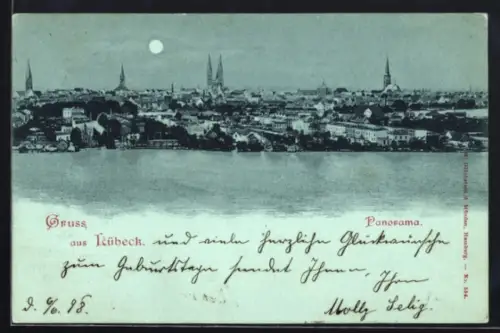 Gruss
aus Lübeck.
Panorama.
und viele herzliche Glückwünsche
zum Geburtstage sendet Ihnen, Ihre
Molly Selig.
d. 9/6. 98.
Hamburg. — No.